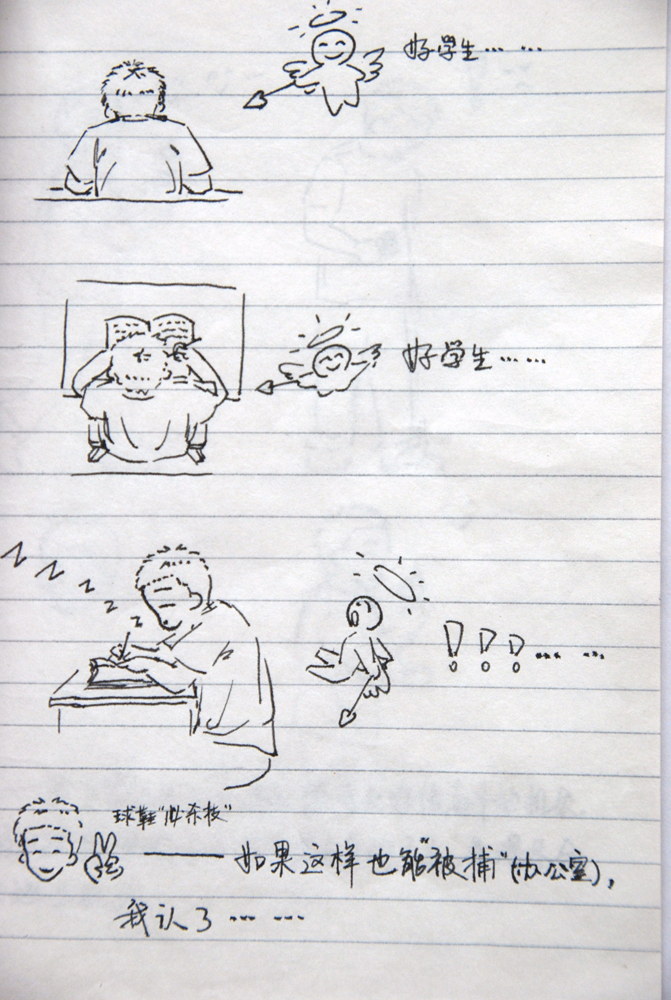 好学生… …
好学生… …
z z z z z
!!!… …
球鞋"必杀技"
——如果这样也能"被捕"(办公室),
我认了… …